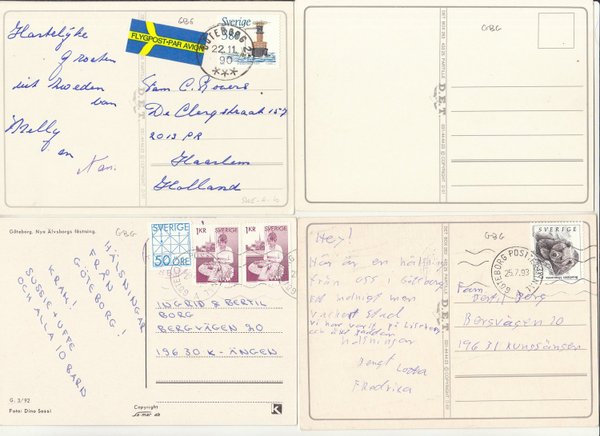 GBG
Hartelijke
groeten
uit Zweden
van
Nelly
en
FLYGPOST·PAR AVION
Sverige
380
GÖTEBORG
22.11
90
De Clercqstraat 157
2013 PR
Haarlem
Holland
GBG
DET
DET
Göteborg. Nya Älvsborgs fästning.
GBG
SVERIGE
50 ÖRE
1 KR
SVERIGE
1 KR
SVERIGE
HÄLSNINGAR
FRÅN
GÖTEBORG!
KRAM!
SUSSIE+UFFE
OCH ALLA IO BARD
INGRID & BERTIL
BORG
BERGVÄGEN 20
19630 K-ÄNGEN
G: 3/92
Foto: Dino Sassi.
Copyright
K
GBG
Hey!
Här är en hälsning
från oss i Göteborg
vacker stad
vi har varit på Liseberg
hälsningar
Bengt Lotta
Fredrika
DET
GÖTEBORG POSTTERMINAL
25.7.93
SVERIGE
Fam
Bertil Borg
Bergvägen 20
19631 Kungsängen